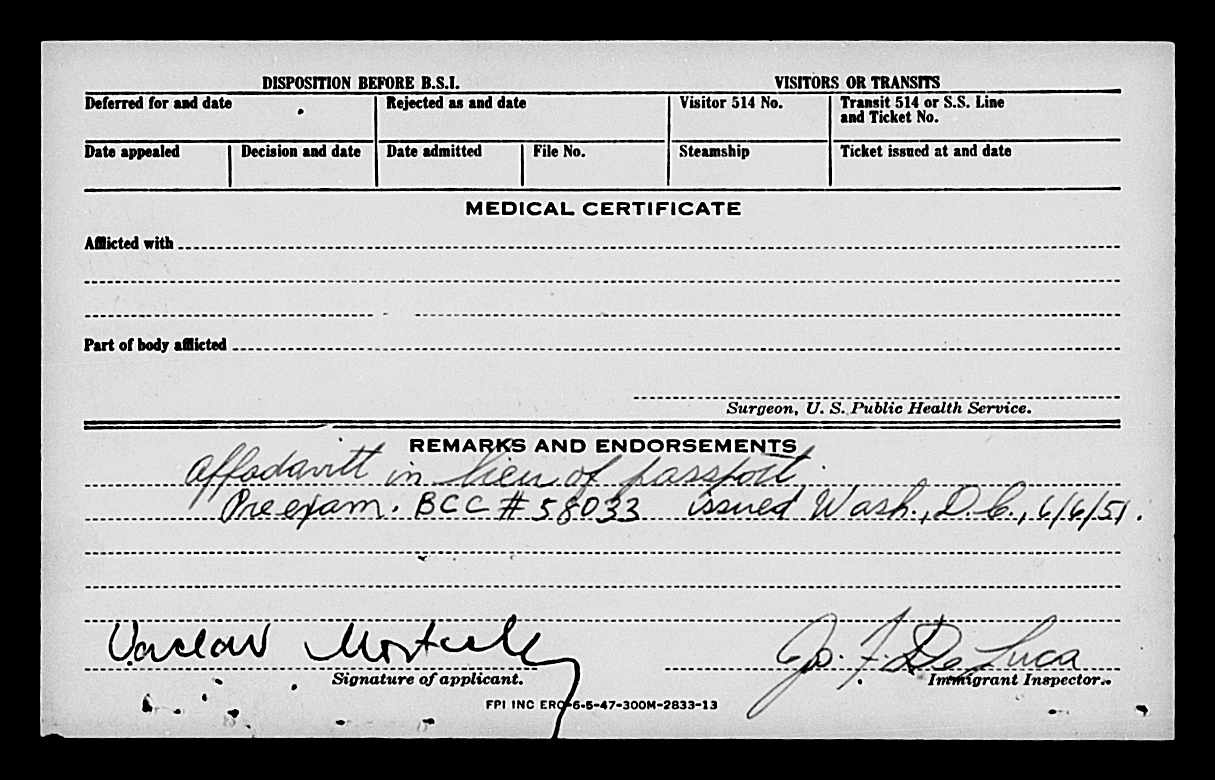 DISPOSITION BEFORE B.S.I. VISITORS OR TRANSITS
Deferred for and date Rejected as and date Visitor 514 No. Transit 514 or S.S. Line
and Ticket No.
Date appealed Decision and date Date admitted File No. Steamship Ticket issued at and date
MEDICAL CERTIFICATE
Afflicted with
Part of body afflicted
Surgeon, U. S. Public Health Service.
REMARKS AND ENDORSEMENTS
Affodavitt in lieu of passport.
Pre exam. BCC # 58033 issued Wash., D.C., 6/6/51.
Vaclav
F. De Luca
Signature of applicant. Immigrant Inspector.
FPI INC ERO-6-5-47-300M-2833-13